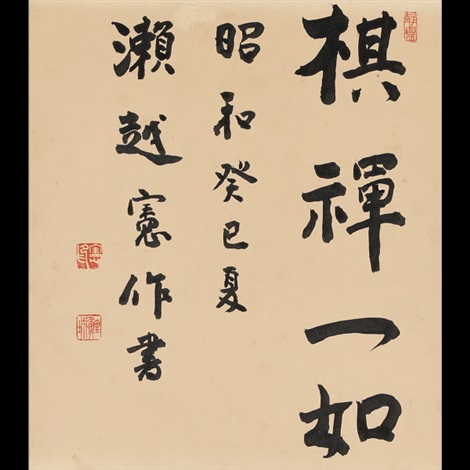 棋禅一如
昭和癸巳夏
瀬越憲作書